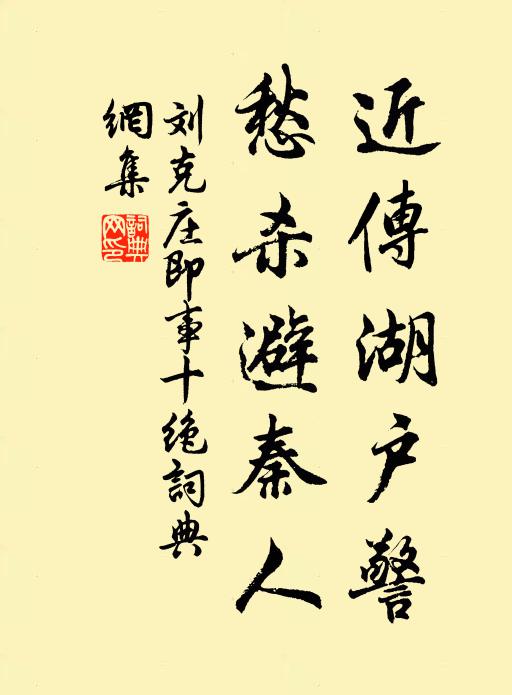 近傳湖户警
愁杀避秦人
刘克庄即事十绝詞典
網集
詞典网印